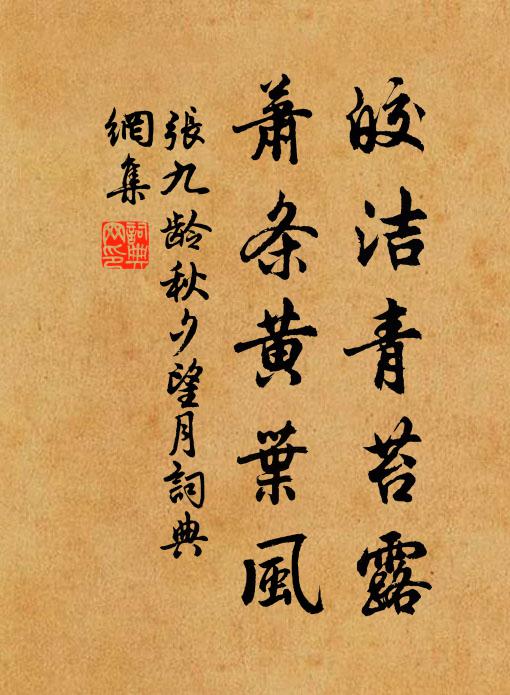 皎洁青苔露
萧条黄葉風
張九龄秋夕望月詞典
網集
詞典網印